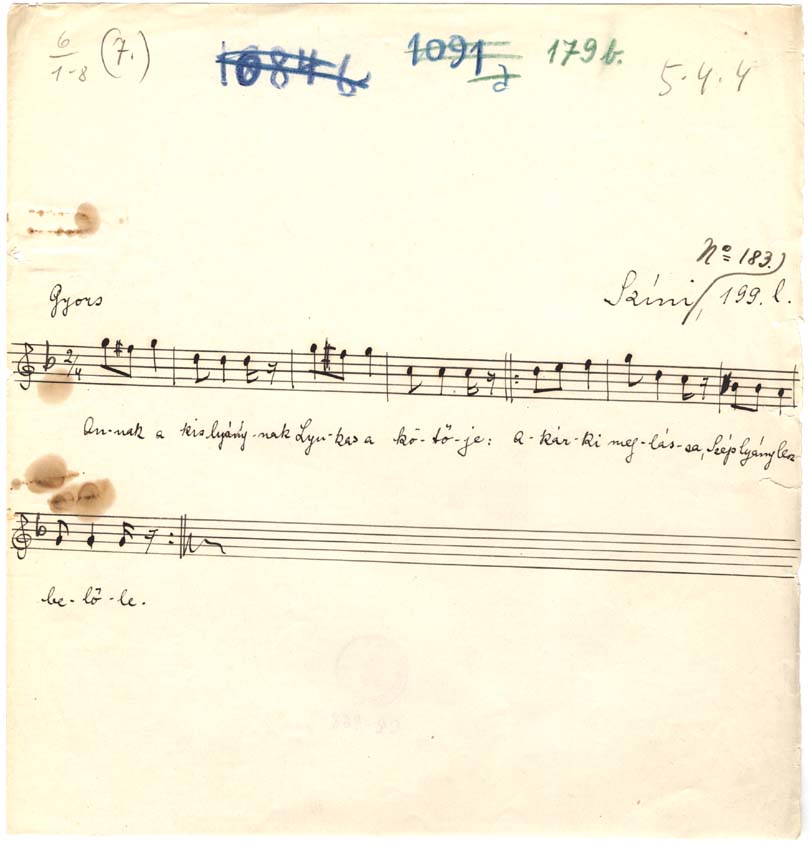 6/1-8 (7.) 1084b 1091 d 179 b. 5.4.4
No 183.)
Gyors Színi, 199. l.
2/4
An-nak a kislyány-nak Lyu-kas a kö-tő-je: a-kár-ki meg-lás-sa, Szép lyány lesz
be-lő-le.